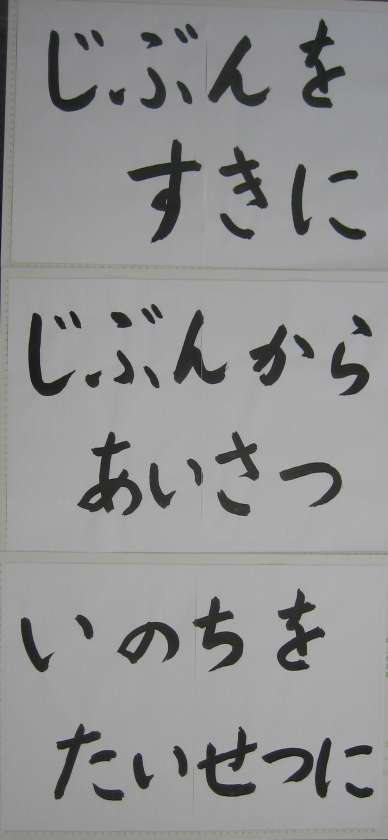 じぶんを
すきに
じぶんから
あいさつ
いのちを
たいせつに